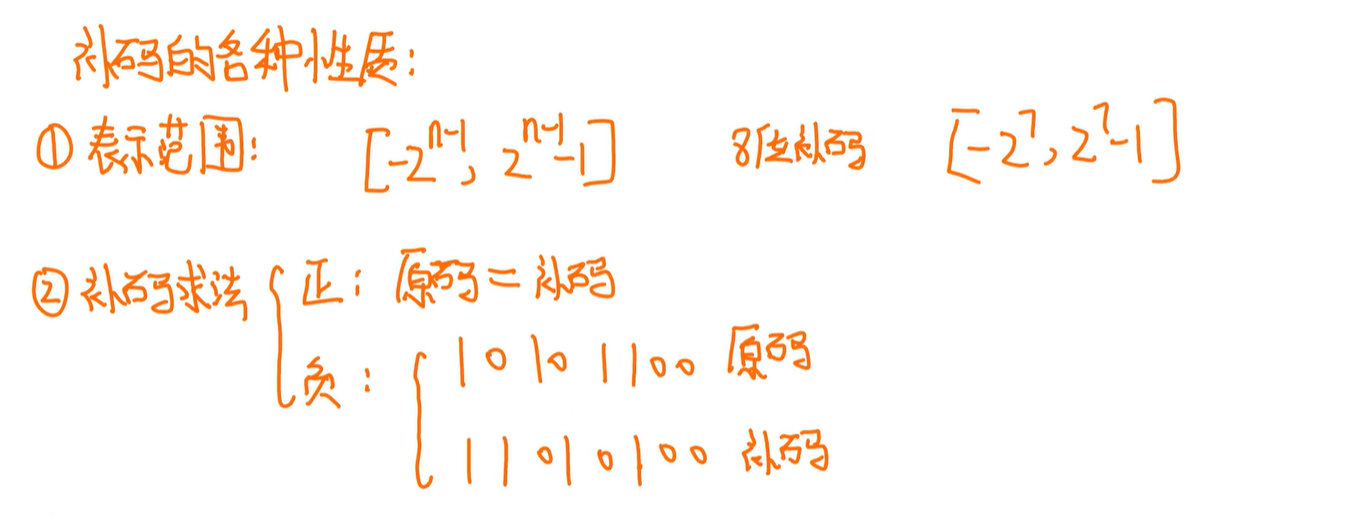 补码的各种性质:
① 表示范围: [-2^{n-1}, 2^{n-1}-1] 8位补码 [-2^7, 2^7-1]
② 补码求法 { 正: 原码 = 补码
负: { 10101100 原码
11010100 补码